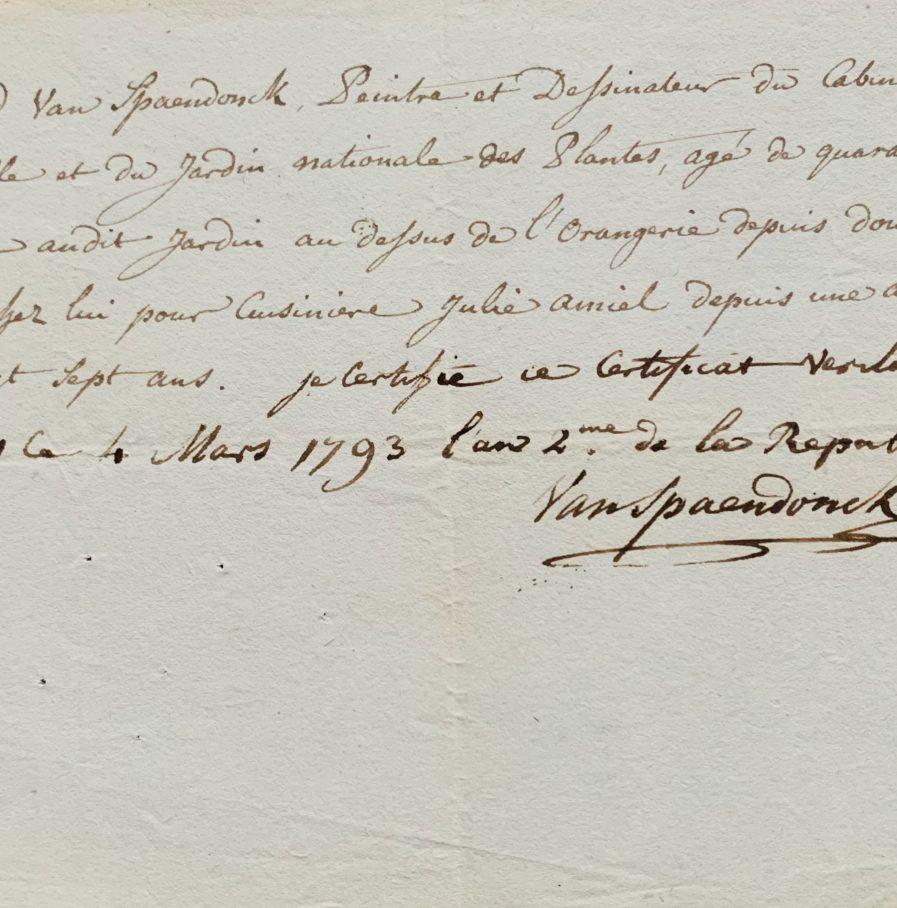 Van Spaendonck, Peintre et Dessinateur du Cabin
lle et du Jardin nationale des Plantes, agé de quara
audit Jardin au dessus de l'Orangerie depuis dou
chez lui pour Cuisiniere Julie amiel depuis une a
t sept ans. je Certifie ce Certificat Verita
Ce 4 Mars 1793 l'an 2.me de la Repub
Van Spaendonck